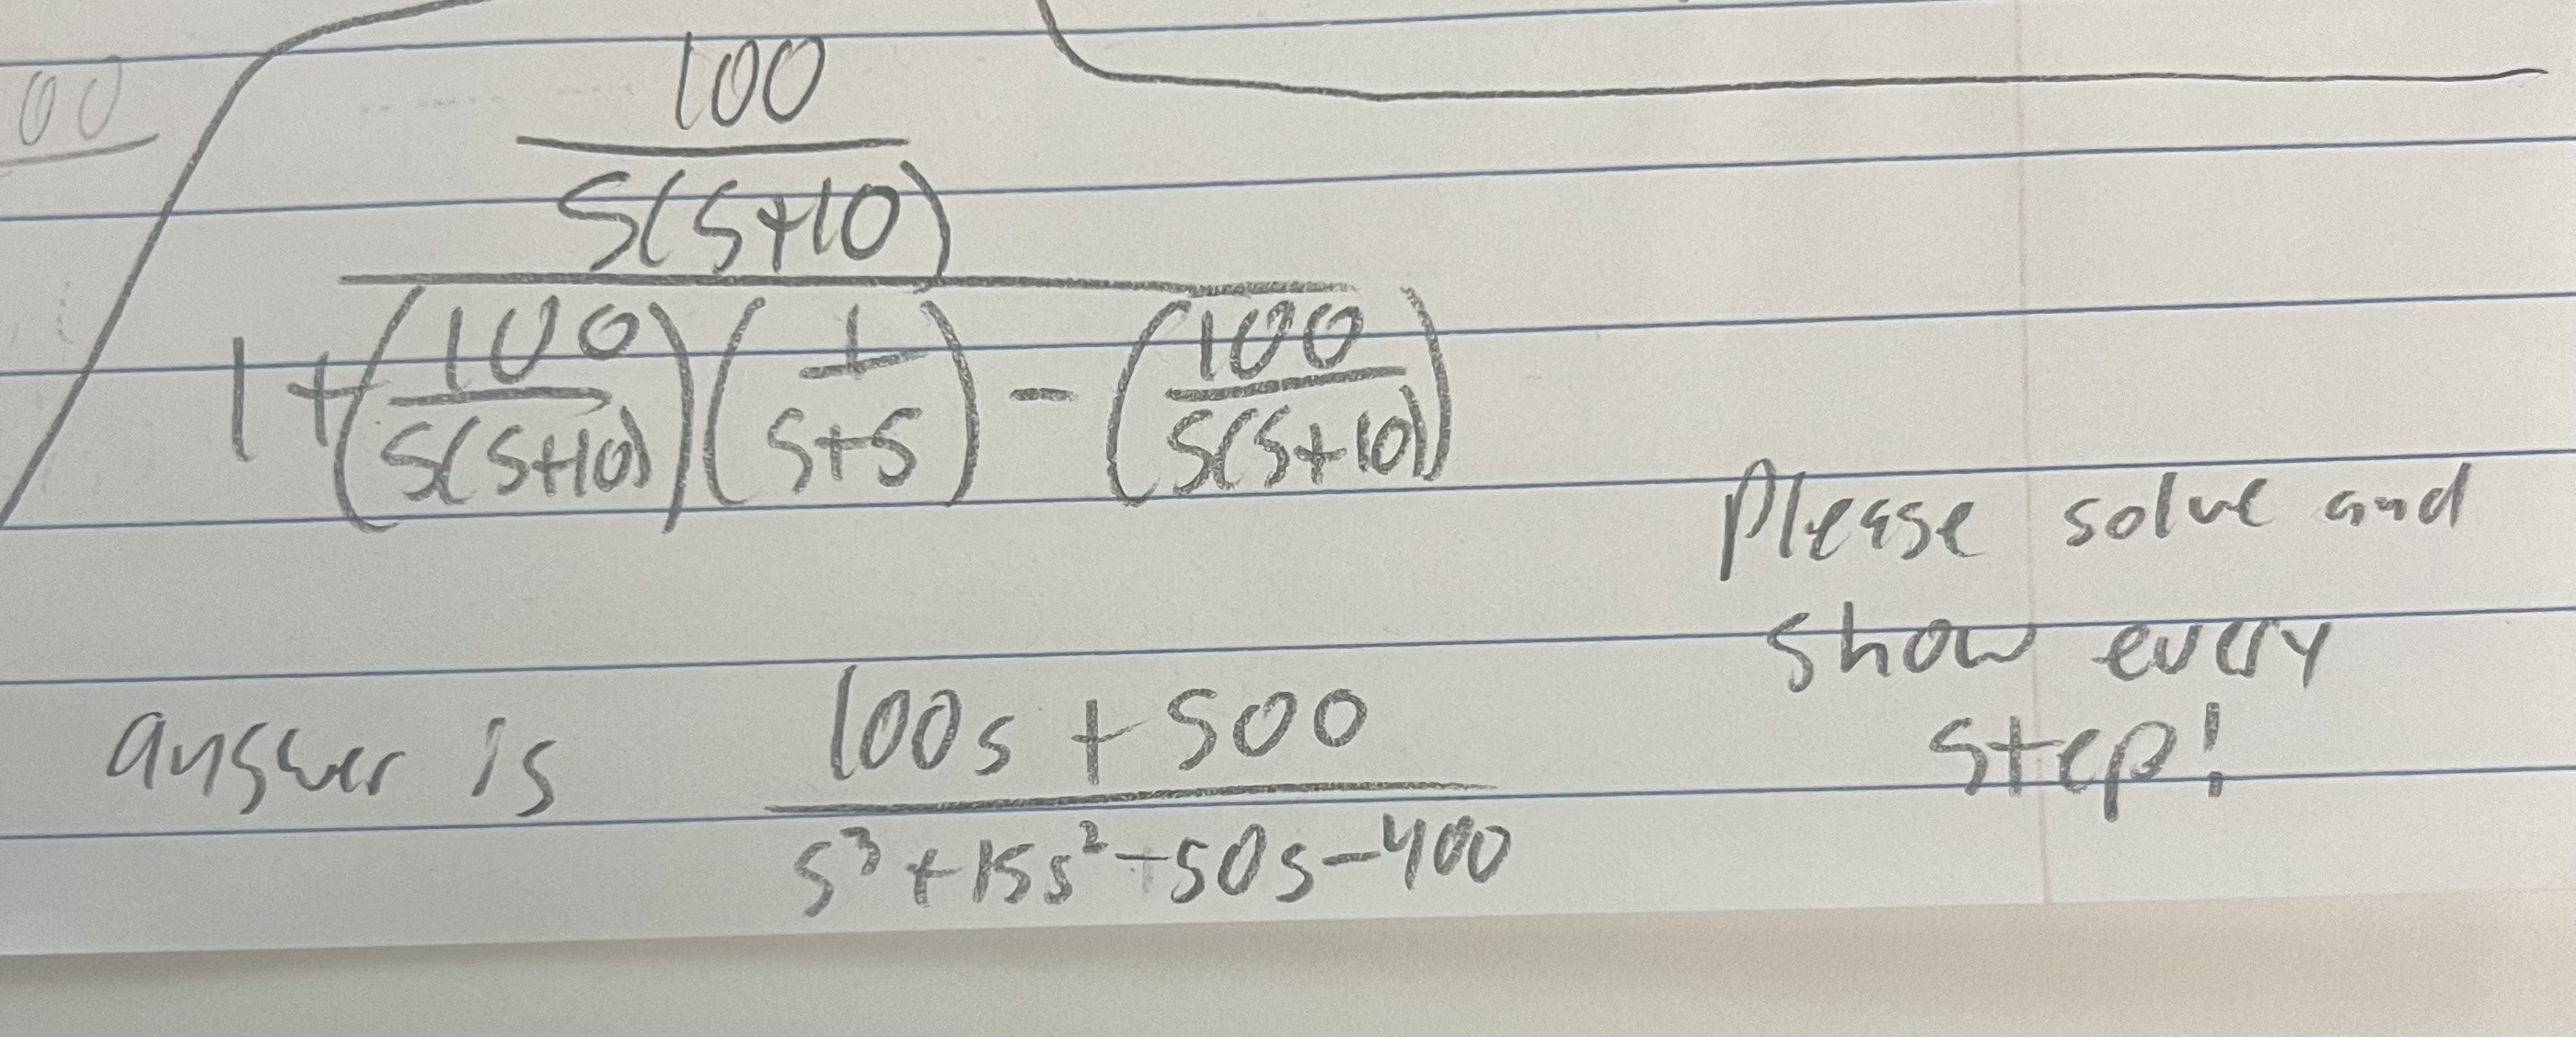 00
100
S(S+10)
1+(100/S(S+10))(1/S+5)-(100/S(S+10))
Please solve and
show every
step!
answer is
100s+500
s³+15s²-50s-400